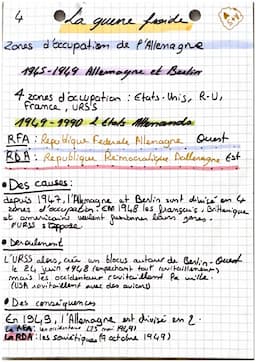 4
La guerre froide
Zones d'occupation de l'Allemagne
1945-1949 Allemagne et Berlin
4 zones d'occupation : Etats-Unis, R-U,
France, URSS
1949-1990 2 Etats Allemands
RFA : Republique Federale Allemagne Ouest
RDA : Republique Democratique D'allemagne Est
• Des causes :
depuis 1947, l'Allemagne et Berlin sont divisé en 4
zones d'occupation. EN 1948 les français, Britanique
et americains veulent fusionner leurs zones.
l'URSS s'oppose.
• Deroulement
L'URSS alors, crée un blocus autour de Berlin-Ouest
le 24 juin 1948 (empechant tout ravitaillement)
mais les occidentaux ravitaillent la ville.
(USA ravitaillent avec des avions)
• Des conséquences
En 1949, l'Allemagne est divisé en 2.
La RFA : les occidentaux (23 mai 1949)
La RDA : les soviétiques (9 octobre 1949)